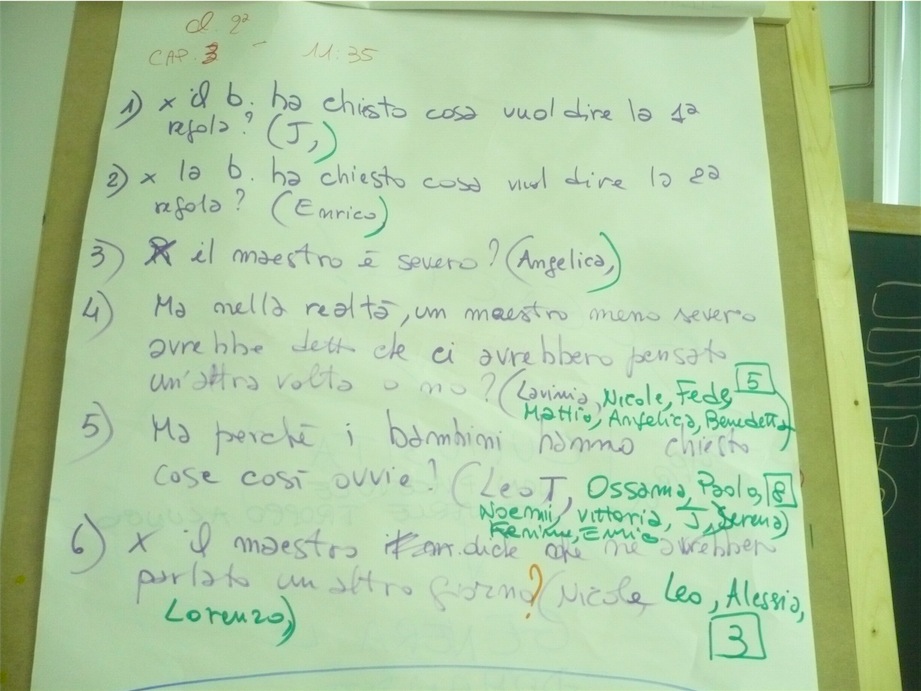 cl. 2ª
CAP. 3 - 11:35
1) x il b. ha chiesto cosa vuol dire la 1ª
regola? (J,)
2) x la b. ha chiesto cosa vuol dire la 2ª
regola? (Enrico)
3) x il maestro è severo? (Angelica,)
4) Ma nella realtà, un maestro meno severo
avrebbe detto che ci avrebbero pensato
un'altra volta o no? (Lavinia, Nicole, Fede, 5
Mattia, Angelica, Benedetta)
5) Ma perché i bambini hanno chiesto
cose così ovvie? (Leo T, Ossama, Paolo, 8
Noemi, Vittoria, J, Serena)
6) x il maestro dice che ne avrebbero
parlato un altro giorno? (Nicole, Leo, Alessia,
Lorenzo,)
3